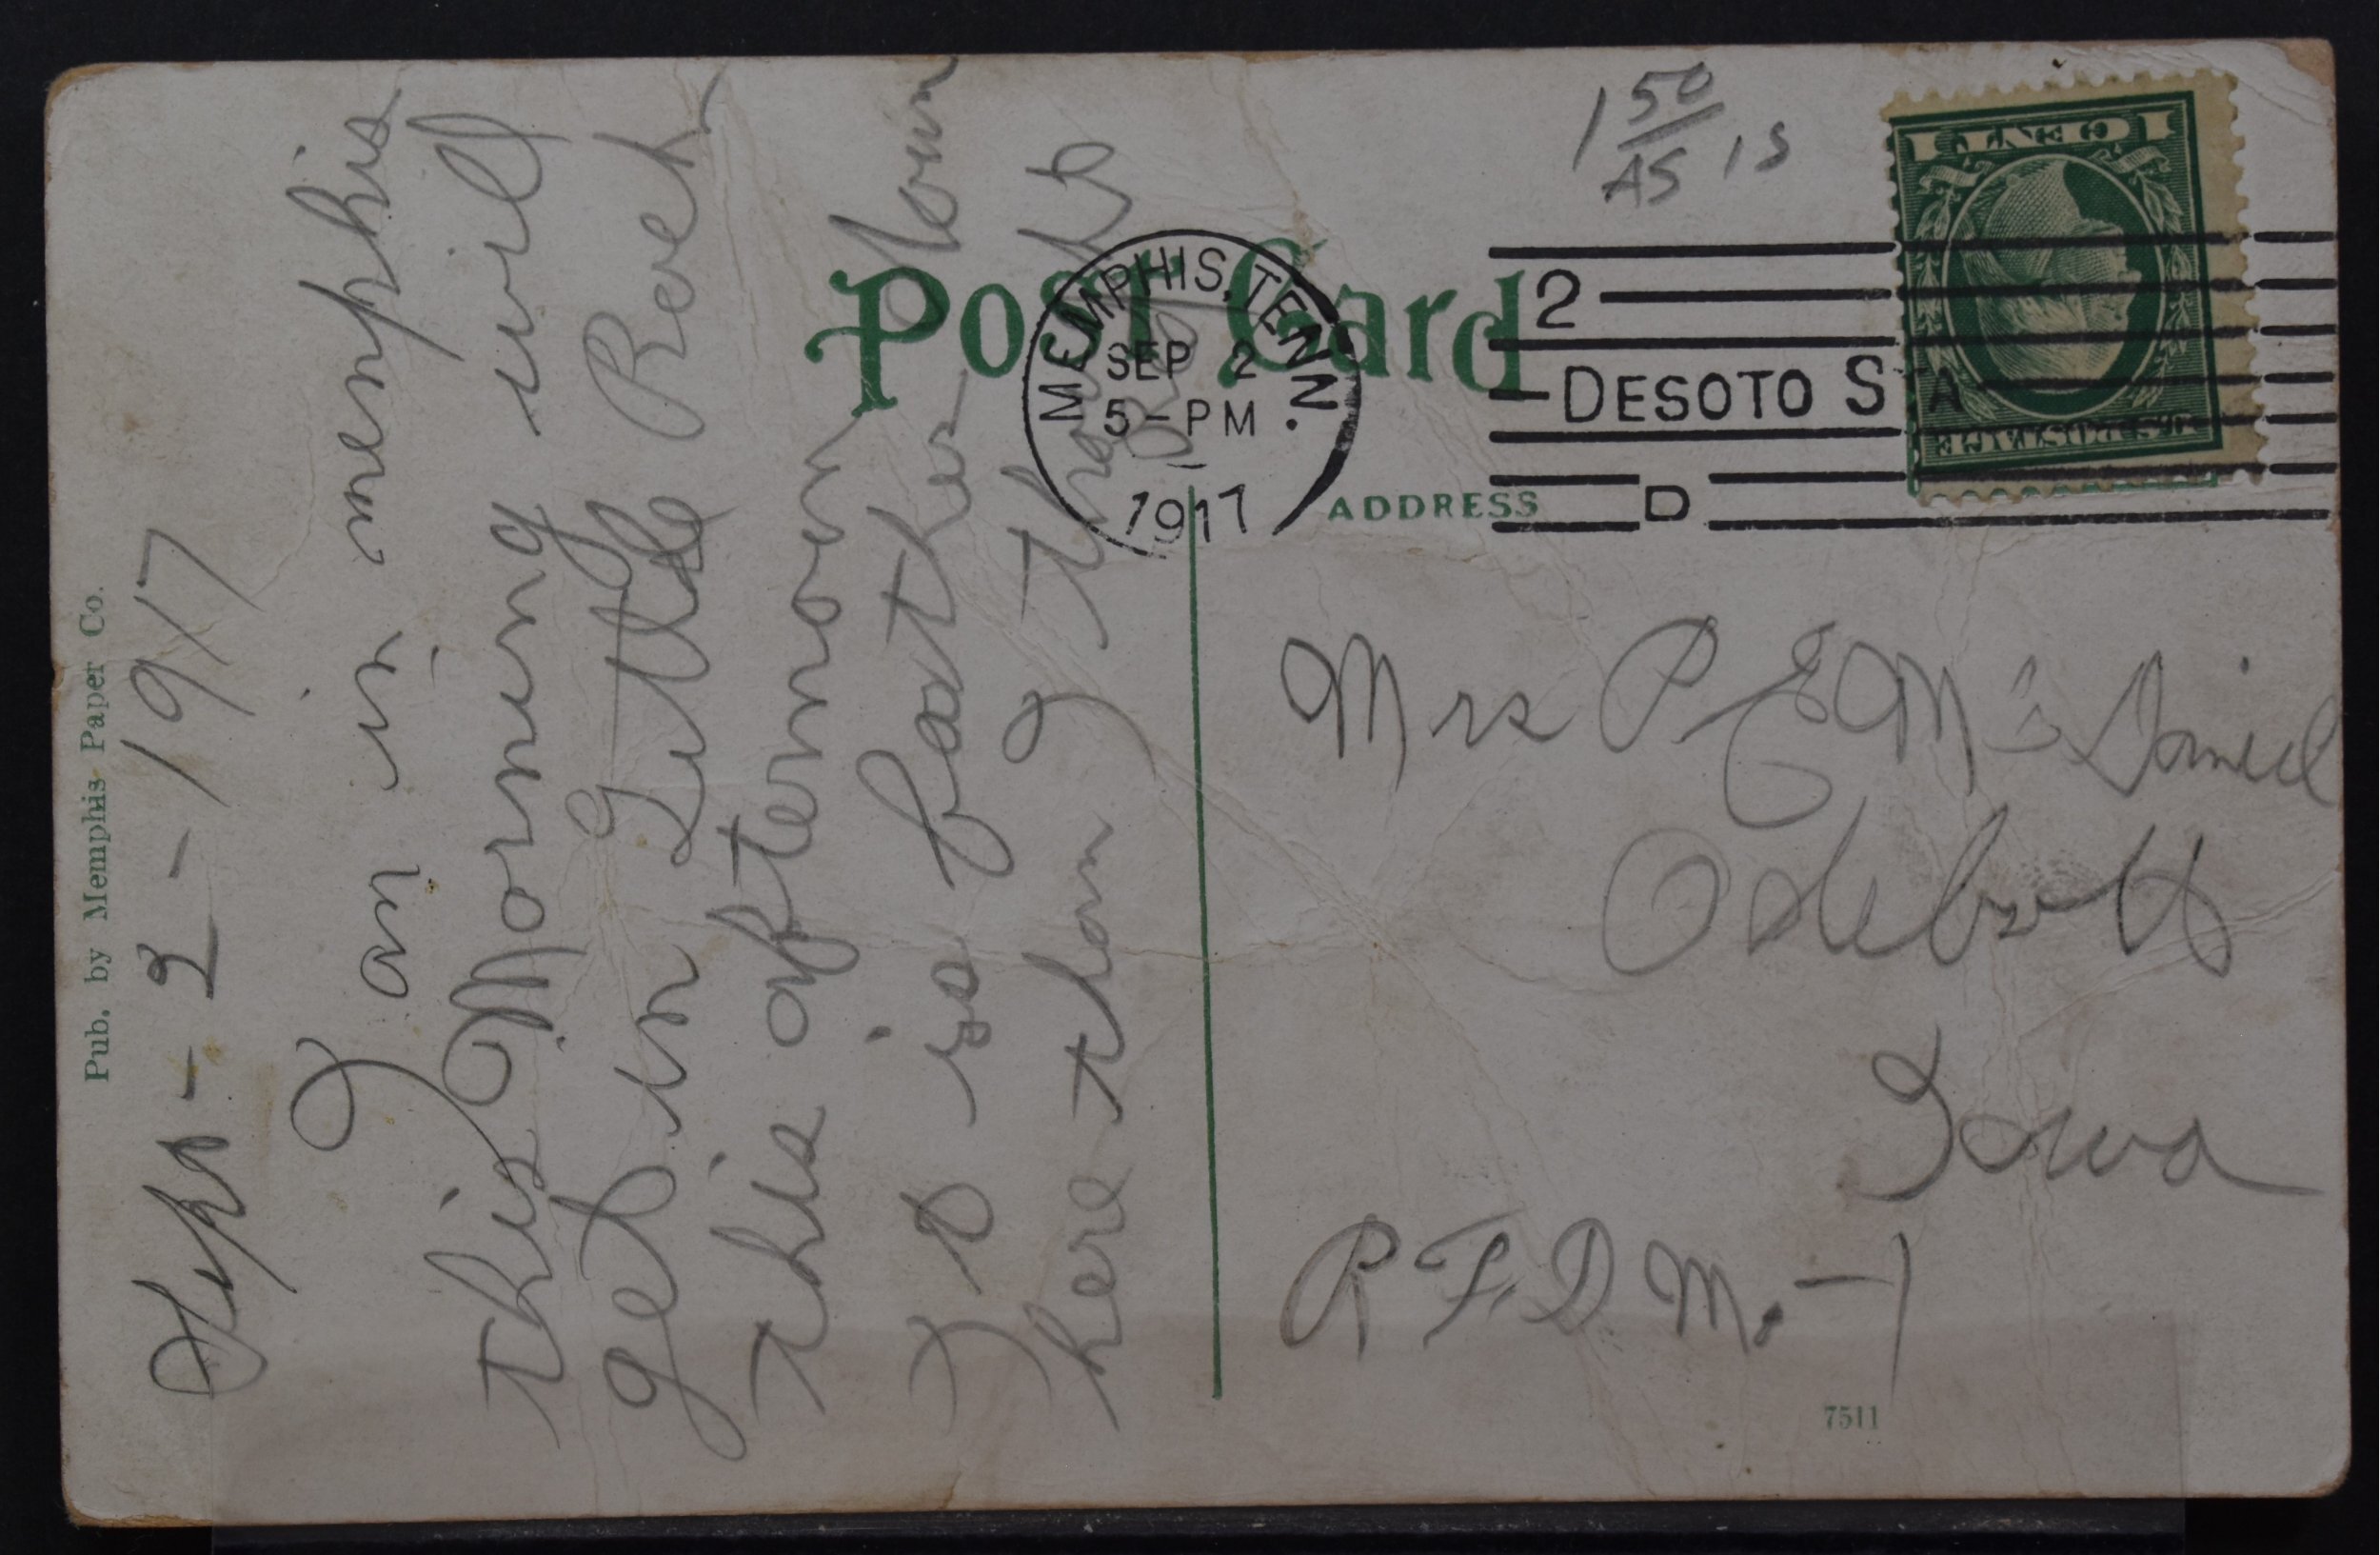 Pub. by Memphis Paper Co.
Sept - 2 - 1917
I am in memphis
this Morning will
get in Little Rock
this afternoon
It is father down
here than I thought
Post Card
ADDRESS
MEMPHIS, TENN.
SEP 2
5-PM
1917
2
DESOTO STA
D
1 50
AS IS
1 CENT 1
U.S. POSTAGE
Mrs P E Mc Daniel
Odebolt
Iowa
R F. D No. - 1
7511